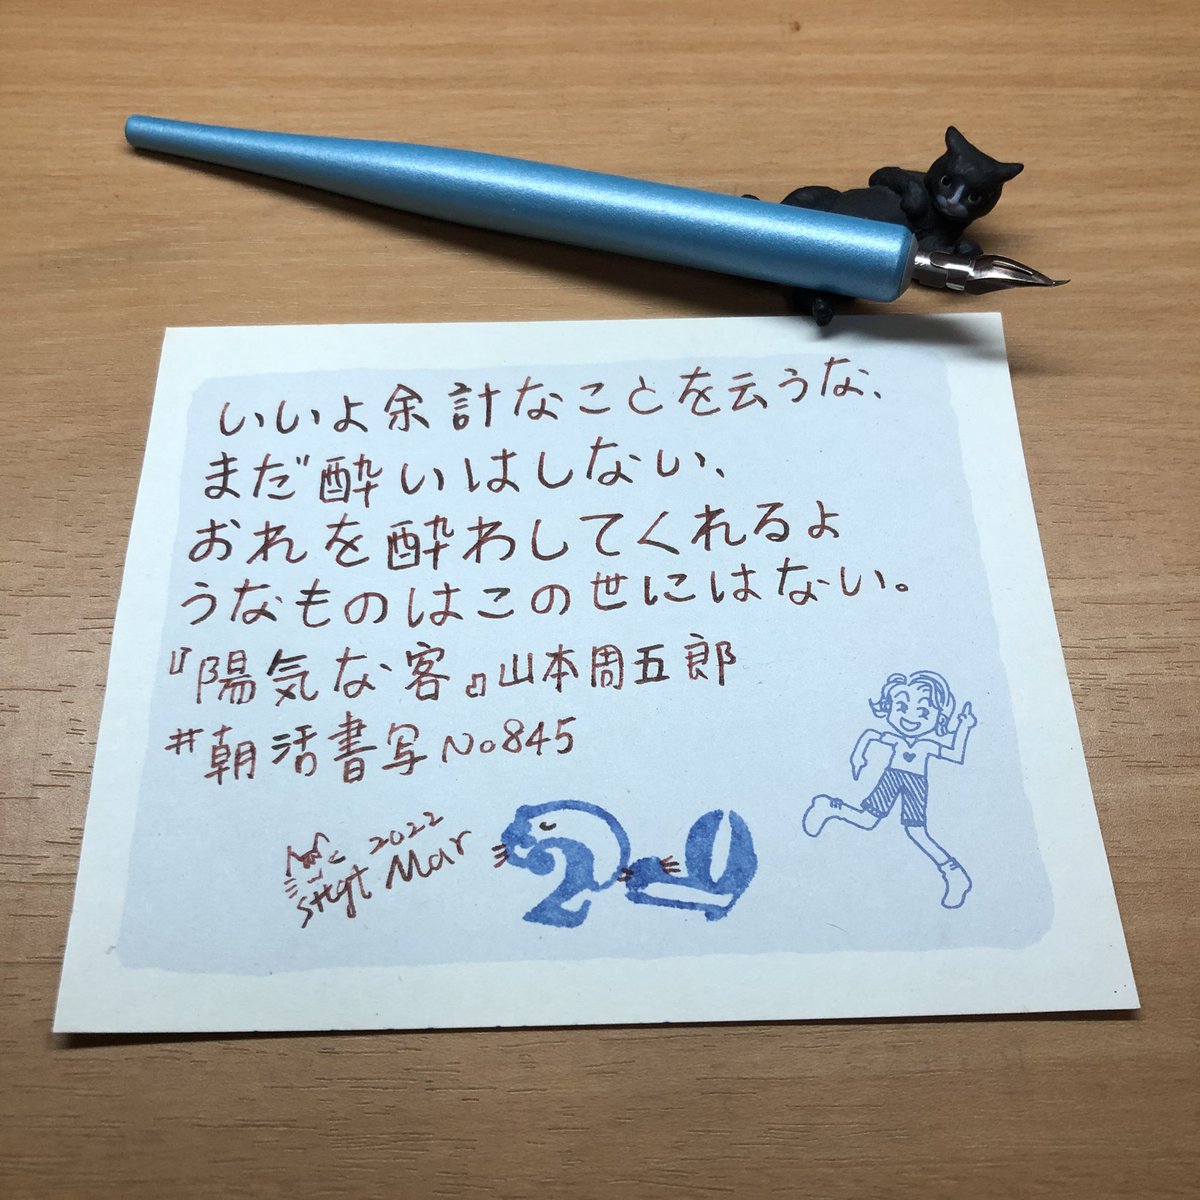 いいよ余計なことを云うな、
まだ酔いはしない、
おれを酔わしてくれるよ
うなものはこの世にはない。
『陽気な客』山本周五郎
#朝活書写 No845
2022
Mar
20